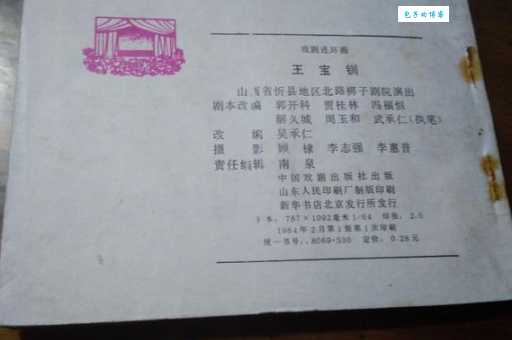 包子的博客
戏剧连环画
王宝钏
山西省忻县地区北路梆子剧院演出
剧本改编 郭开科 贾桂林 冯福恒
解久城 周玉和 武承仁(执笔)
改编 吴承仁
摄影 顾棣 李志强 李惠普
责任编辑 南泉
中国戏剧出版社出版
山东人民印刷厂制版印刷
新华书店北京发行所发行
本: 787×1092毫米 1/64 印张: 2.5
1984年2月第1版第1次印刷
统一书号: 8069·530 定价: 0.28元